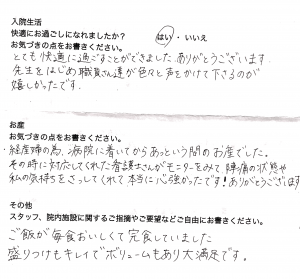 入院生活
快適にお過ごしになれましたか？ はい・いいえ
お気づきの点をお書きください。
とても快適に過ごすことができました ありがとうございます
先生をはじめ職員さん達が色々と声をかけて下さるのが
嬉しかったです．
お産
お気づきの点をお書きください。
・経産婦の為、病院に着いてからあっという間のお産でした。
その時に対応してくれた看護士さんがモニターをみて 陣痛の状態や
私の気持ちをさっしてくれて本当に心強かったです！ありがとうございます
その他
スタッフ、院内施設に関するご指摘やご要望などご自由にお書きください。
ご飯が毎食おいしくて完食していました
盛りつけもキレイでボリュームもあり大満足です。